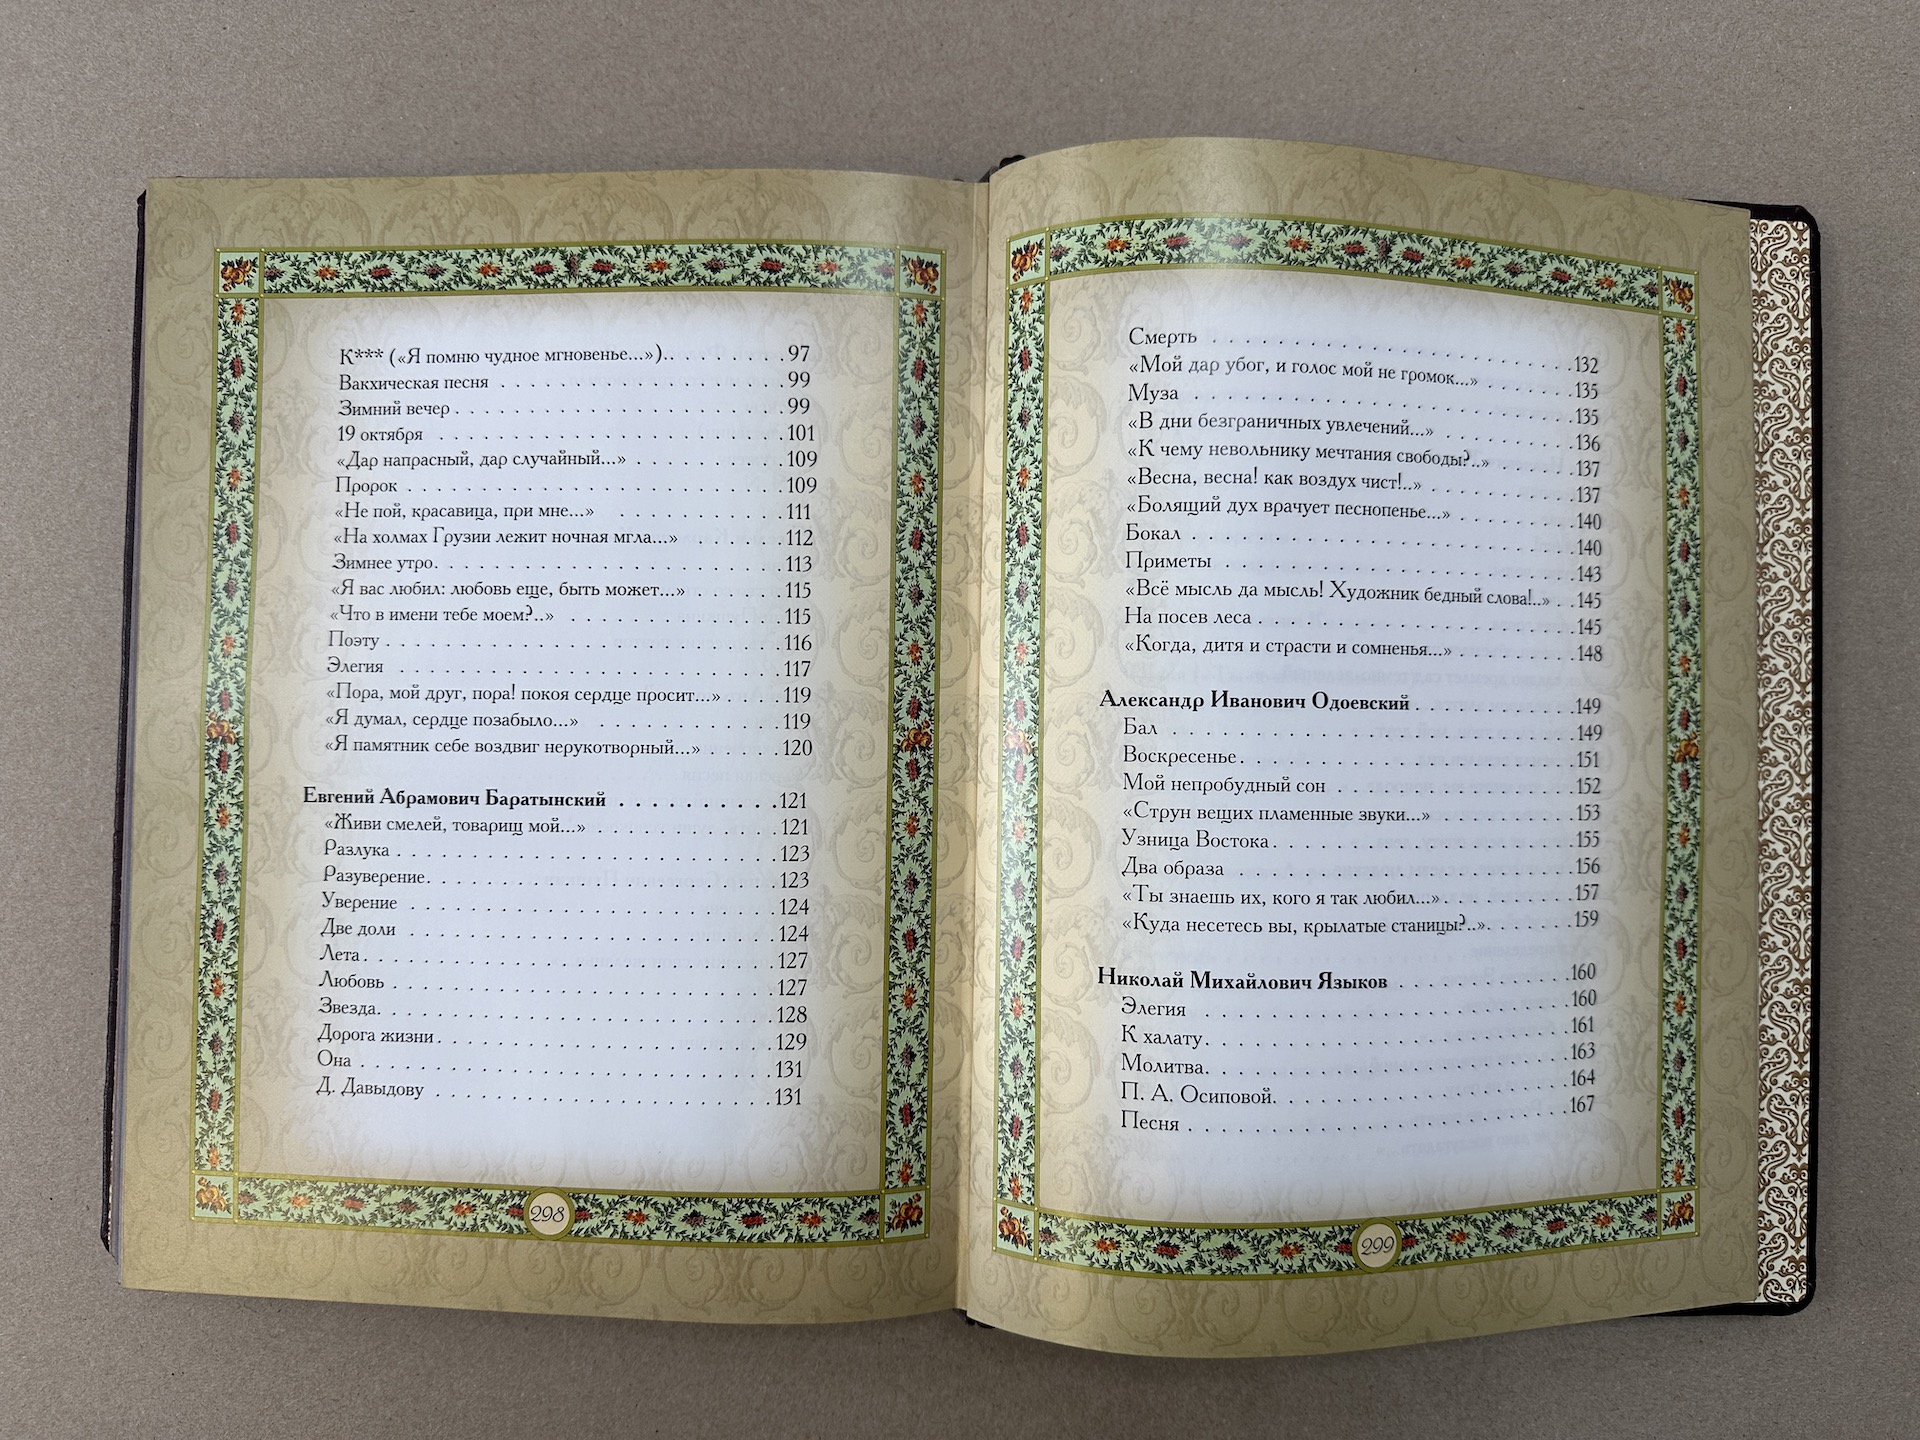 К*** («Я помню чудное мгновенье...»).. . . . . . . . .97
Вакхическая песня . . . . . . . . . . . . . . . .99
Зимний вечер . . . . . . . . . . . . . . . . . .99
19 октября . . . . . . . . . . . . . . . . . . .101
«Дар напрасный, дар случайный...» . . . . . . . . .109
Пророк . . . . . . . . . . . . . . . . . . . . .109
«Не пой, красавица, при мне...» . . . . . . . . . .111
«На холмах Грузии лежит ночная мгла...» . . . . . .112
Зимнее утро. . . . . . . . . . . . . . . . . . .113
«Я вас любил: любовь еще, быть может...» . . . . . .115
«Что в имени тебе моем?..» . . . . . . . . . . . .115
Поэту . . . . . . . . . . . . . . . . . . . . . .116
Элегия . . . . . . . . . . . . . . . . . . . . .117
«Пора, мой друг, пора! покоя сердце просит...» . . . .119
«Я думал, сердце позабыло...» . . . . . . . . . . .119
«Я памятник себе воздвиг нерукотворный...» . . . . .120
Евгений Абрамович Баратынский . . . . . . . . . .121
«Живи смелей, товарищ мой...» . . . . . . . . . . .121
Разлука . . . . . . . . . . . . . . . . . . . . .123
Разуверение. . . . . . . . . . . . . . . . . . . .123
Уверение . . . . . . . . . . . . . . . . . . . . .124
Две доли . . . . . . . . . . . . . . . . . . . . .124
Лета. . . . . . . . . . . . . . . . . . . . . . .127
Любовь . . . . . . . . . . . . . . . . . . . . . .127
Звезда. . . . . . . . . . . . . . . . . . . . . .128
Дорога жизни. . . . . . . . . . . . . . . . . . .129
Она . . . . . . . . . . . . . . . . . . . . . . .131
Д. Давыдову . . . . . . . . . . . . . . . . . . .131
298
Смерть . . . . . . . . . . . . . . . . . . . . .132
«Мой дар убог, и голос мой не громок...» . . . . . .135
Муза . . . . . . . . . . . . . . . . . . . . . .135
«В дни безграничных увлечений...» . . . . . . . . .136
«К чему невольнику мечтания свободы?..» . . . . . .137
«Весна, весна! как воздух чист!..» . . . . . . . . .137
«Болящий дух врачует песнопенье...» . . . . . . . .140
Бокал . . . . . . . . . . . . . . . . . . . . . .140
Приметы . . . . . . . . . . . . . . . . . . . . .143
«Всё мысль да мысль! Художник бедный слова!..» . . .145
На посев леса . . . . . . . . . . . . . . . . . .145
«Когда, дитя и страсти и сомненья...» . . . . . . . .148
Александр Иванович Одоевский . . . . . . . . . .149
Бал . . . . . . . . . . . . . . . . . . . . . . .149
Воскресенье. . . . . . . . . . . . . . . . . . . .151
Мой непробудный сон . . . . . . . . . . . . . . .152
«Струн вещих пламенные звуки...» . . . . . . . . .153
Узница Востока. . . . . . . . . . . . . . . . . .155
Два образа . . . . . . . . . . . . . . . . . . . .156
«Ты знаешь их, кого я так любил...». . . . . . . . .157
«Куда несетесь вы, крылатые станицы?..». . . . . . .159
Николай Михайлович Языков . . . . . . . . . . .160
Элегия . . . . . . . . . . . . . . . . . . . . .160
К халату. . . . . . . . . . . . . . . . . . . . .161
Молитва. . . . . . . . . . . . . . . . . . . . .163
П. А. Осиповой. . . . . . . . . . . . . . . . . .164
Песня . . . . . . . . . . . . . . . . . . . . . .167
299